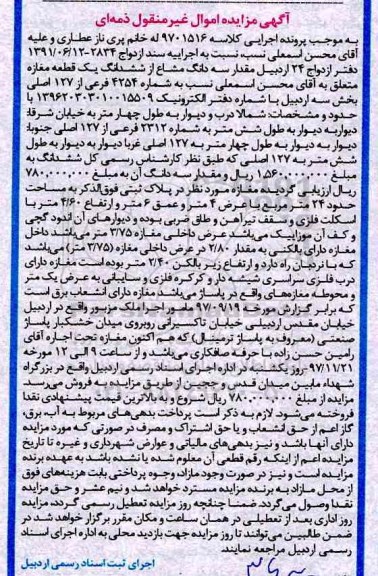 آگهی مزایده اموال غیرمنقول ذمه‌ای
به موجب پرونده اجرایی کلاسه ۹۷۰۱۵۱۶ له خانم پری ناز عطاری و علیه
آقای محسن اسمعلی نسب، نسبت به اجراییه سند ازدواج ۲۸۳۴-۱۳۹۱/۰۶/۱۲
دفتر ازدواج ۲۴ اردبیل مقدار سه دانگ مشاع از ششدانگ یک قطعه مغازه
متعلق به آقای محسن اسمعلی نسب به شماره ۴۲۵۴ فرعی از ۱۲۷ اصلی
بخش سه اردبیل با شماره دفتر الکترونیک ۱۳۹۶۲۰۳۰۳۰۱۰۰۱۵۵۰۹ با
حدود و مشخصات: شمالا درب و دیوار به طول چهار متر به خیابان شرقا:
دیوار به دیوار به طول شش متر به شماره ۲۳۱۲ فرعی از ۱۲۷ اصلی جنوبا:
دیوار به دیوار به طول چهار متر به ۱۲۷ اصلی غربا دیوار به دیوار به طول
شش متر به ۱۲۷ اصلی که طبق نظر کارشناس رسمی کل ششدانگ به
مبلغ ۱,۵۶۰,۰۰۰,۰۰۰ ریال و مقدار سه دانگ آن به مبلغ ۷۸۰,۰۰۰,۰۰۰
ریال ارزیابی گردیده مغازه مورد نظر در پلاک ثبتی فوق‌الذکر به مساحت
حدود ۲۴ متر مربع با عرض ۴ متر و عمق ۶ متر و ارتفاع ۴/۶۰ متر با
اسکلت فلزی و سقف تیرآهن و طاق ضربی بوده و دیوارهای آن اندود گچی
و کف آن موزاییک می‌باشد عرض داخلی مغازه ۳/۷۵ متر می‌باشد داخل
مغازه دارای بالکنی به مقدار ۲/۸۰ در عرض داخلی مغازه (۳/۷۵ متر) می‌باشد
که با نردبان راه دارد و ارتفاع زیر بالکن ۲/۴۰ متر بوده است مغازه دارای
درب فلزی سراسری شیشه دار و کرکره فلزی و سایبانی به عرض یک متر
و محوطه مغازه‌های واقع در پاساژ می‌باشد مغازه دارای انشعاب برق است
که برابر گزارش مورخه ۹۷۰۹/۱۹ مامور اجرا ملک مزبور واقع در اردبیل
خیابان مقدس اردبیلی خیابان تاکسیرانی روبروی میدان خشکبار پاساژ
صنعتی (معروف به پاساژ ترمینال) که هم اکنون مغازه تحت اجاره آقای
رامین حسن زاده با حرفه صافکاری می‌باشد و از ساعت ۹ الی ۱۲ مورخه
۹۷/۱۱/۲۱-روز یکشنبه در اداره اجرای اسناد رسمی اردبیل واقع در بزرگراه
شهداء مابین میدان قدس و ججین از طریق مزایده به فروش می‌رسد
مزایده از مبلغ ۷۸۰,۰۰۰,۰۰۰ ریال شروع و به بالاترین قیمت پیشنهادی نقدا
فروخته می‌شود. لازم به ذکر است پرداخت بدهی‌های مربوط به آب، برق،
گاز اعم از حق انشعاب و یا حق اشتراک و مصرف در صورتی که مورد مزایده
دارای آنها باشد و نیز بدهی‌های مالیاتی و عوارض شهرداری و غیره تا تاریخ
مزایده اعم از اینکه رقم قطعی آن معلوم شده یا نشده باشد به عهده برنده
مزایده است و نیز در صورت وجود مازاد، وجوه پرداختی بابت هزینه‌های فوق
از محل مازاد به برنده مزایده مسترد خواهد شد و نیم عشر و حق مزایده
نقدا وصول می‌گردد. ضمنا چنانچه روز مزایده تعطیل رسمی گردد مزایده
روز اداری بعد از تعطیلی در همان ساعت و مکان مقرر برگزار خواهد شد در
ضمن طالبین می‌توانند تا روز مزایده جهت بازدید محلی به اداره اجرای اسناد
رسمی اردبیل مراجعه نمایند.
اجرای ثبت اسناد رسمی اردبیل